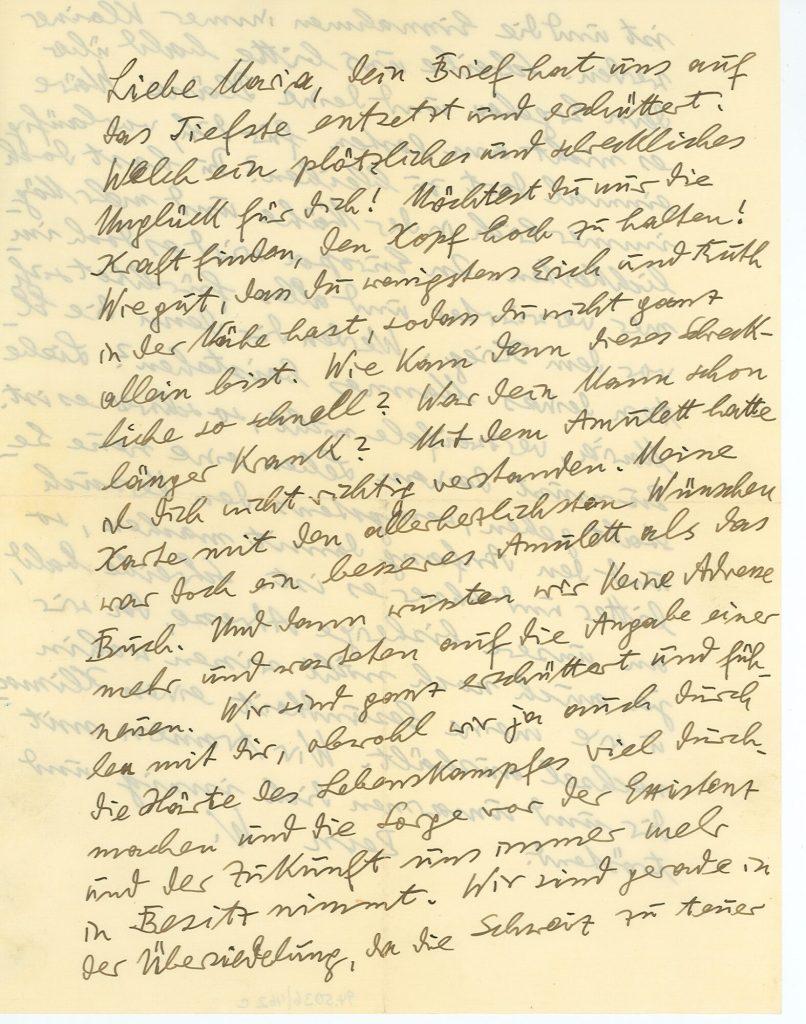 Liebe Maria, dein Brief hat uns auf
das Tiefste entsetzt und erschüttert.
Welch ein plötzliches und schreckliches
Unglück für dich! Möchtest du nur die
Kraft finden, den Kopf hoch zu halten!
Wie gut, dass du wenigstens Erich und Ruth
in der Nähe hast, sodass du nicht ganz
allein bist. Wie kam denn dieses Schreck-
liche so schnell? War dein Mann schon
länger krank? Mit dem Amulett hatte
ich dich nicht richtig verstanden. Meine
Karte mit den allerherzlichsten Wünschen
war doch ein besseres Amulett als das
Buch. Und dann wussten wir keine Adresse
mehr und warteten auf die Angabe einer
neuen. Wir sind ganz erschüttert und füh-
len mit dir, obwohl wir ja auch durch
die Härte des Lebenskampfes viel durch-
machen und die Sorge vor der Existenz
und der Zukunft uns immer mehr
in Besitz nimmt. Wir sind gerade in
der Übersiedelung, da die Schweiz zu teuer